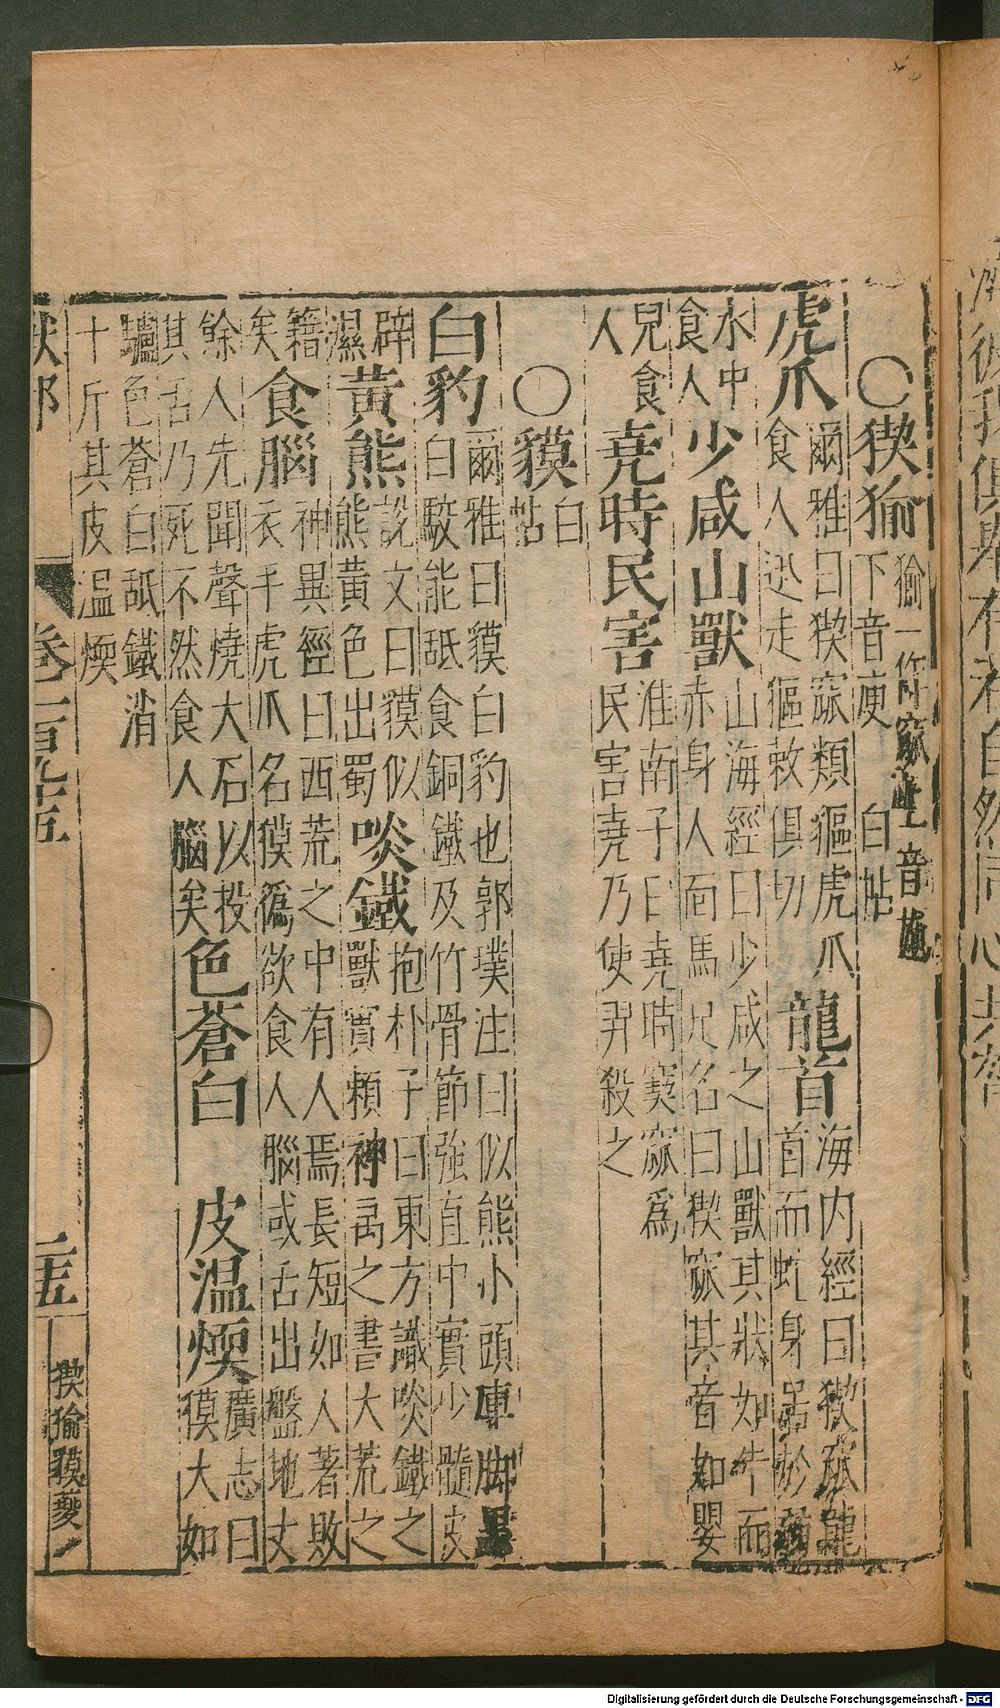 ○猰㺄猰㺄一作窫窳上音軋
下音庾 白帖
虎爪爾雅曰猰㺄類貙虎爪
食人迅走貙敕俱切
龍首海內經曰猰㺄龍
首而蛇身居於弱
水中
食人
少咸山獸山海經曰少咸之山獸其狀如牛而
赤身人面馬足名曰猰㺄其音如嬰
兒食
人
堯時民害淮南子曰堯時窫窳為
民害堯乃使羿殺之
○貘白
帖
白豹爾雅曰貘白豹也郭璞注曰似熊小頭庳脚黑
白駁能舐食銅鐵及竹骨節強直中實少髓皮
辟
濕
黃熊說文曰貘似
熊黃色出蜀
啖鐵抱朴子曰東方識啖鐵之
獸實賴神禹之書大荒之
籍
矣
食腦神異經曰西荒之中有人焉長短如人著敗
衣手虎爪名獏㺔欲食人腦或舌出盤地丈
餘人先聞聲燒大石以投
其舌乃死不然食人腦矣
色蒼白 皮溫煗廣志曰
獏大如
驢色蒼白舐鐵消
十斤其皮溫煗
獸部 卷一百九十五 二十五 猰㺄貘㚇